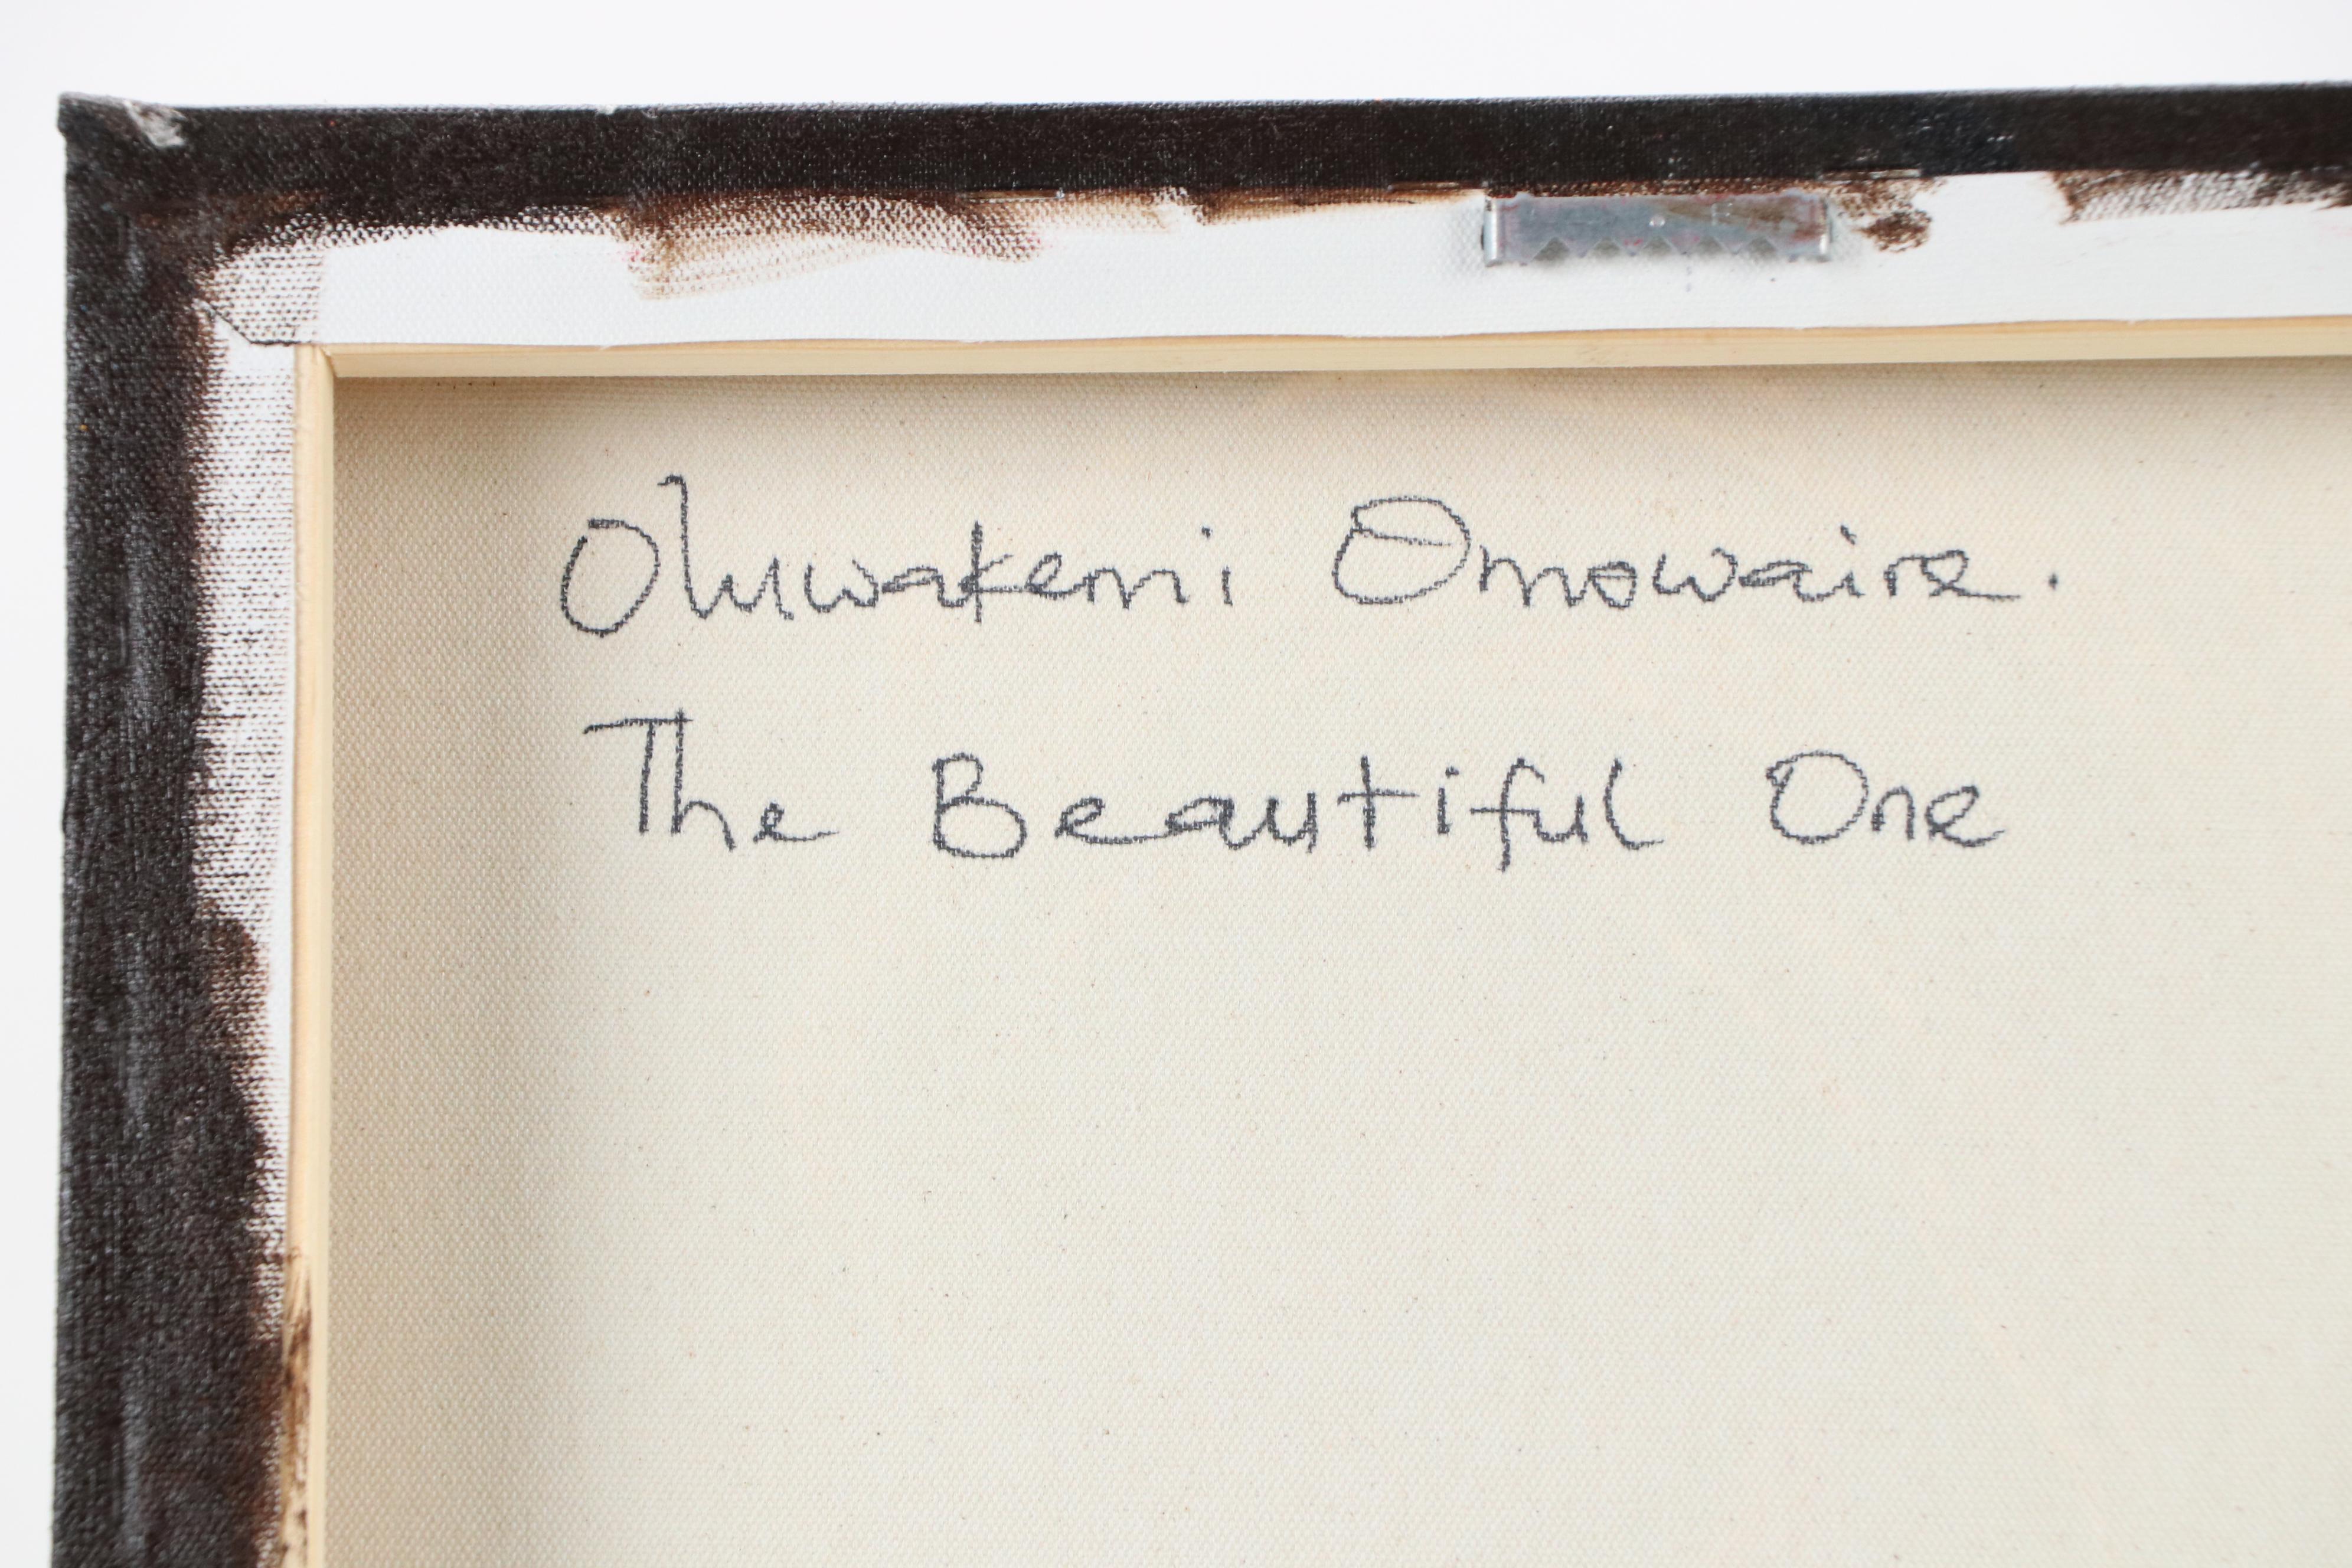 Oluwakemi Omowaire.
The Beautiful One